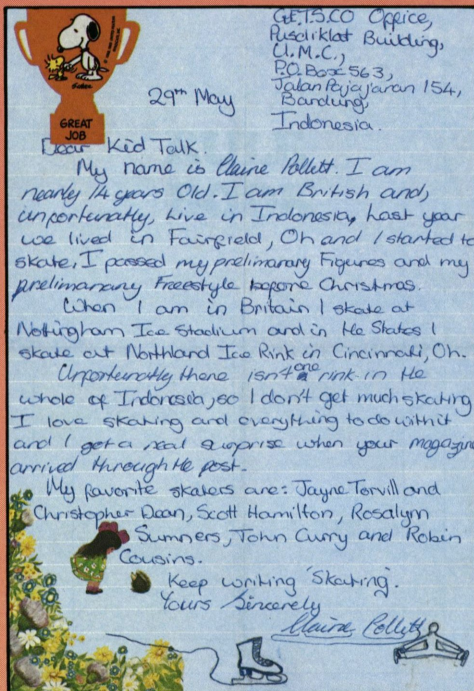 GREAT
JOB
G.E.T.S.CO Office,
Pusdiklat Building,
U.M.C.,
P.O. Box 563,
Jalan Pajajaran 154,
Bandung,
Indonesia.
29th May
Dear Kid Talk.
My name is Claire Pollett. I am
nearly 14 years Old. I am British and,
unfortunatly, live in Indonesia, Last year
we lived in Fairfield, Oh and I started to
skate, I passed my prelimanary Figures and my
prelimanary Freestyle before Christmas.
When I am in Britain I skate at
Nottingham Ice Stadium and in the States I
skate at Northland Ice Rink in Cincinnati, Oh.
Unfortunatly there isn't one rink in the
whole of Indonesia, so I don't get much skating
I love skating and everything to do with it
and I got a real surprise when your magazine
arrived through the post.
My favorite skaters are: Jayne Torvill and
Christopher Dean, Scott Hamilton, Rosalynn
Sumners, John Curry and Robin
Cousins.
Keep writing 'Skating'.
Yours Sincerely
Claire Pollett